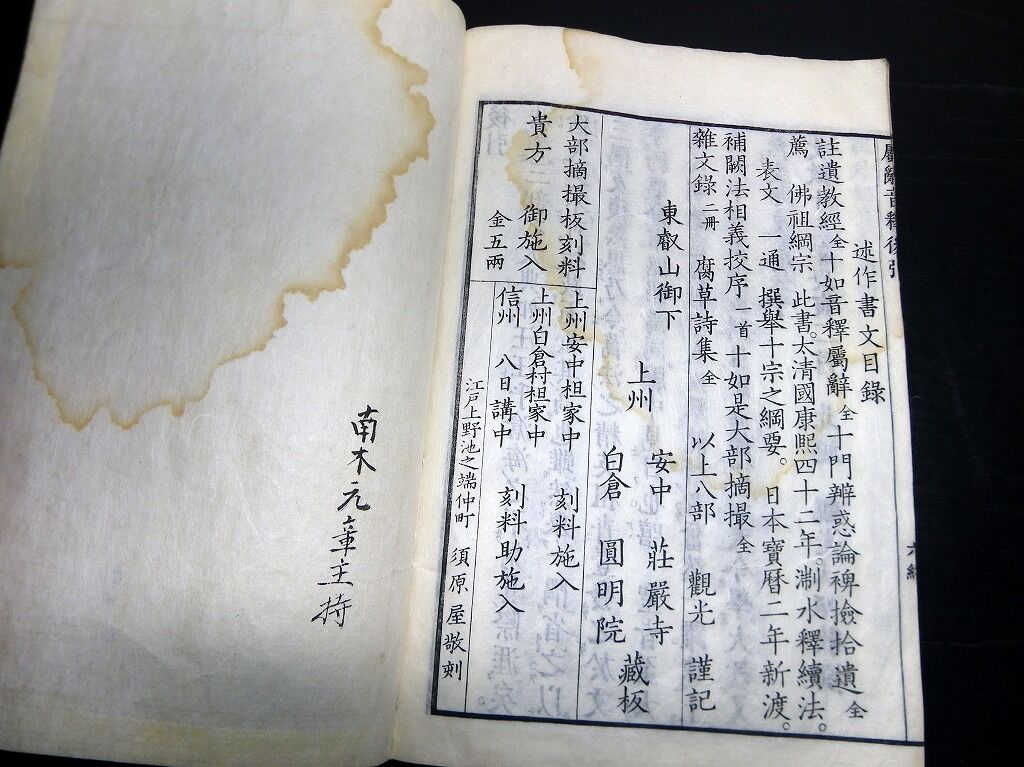 屬辭音釋後引
述作書文目錄
註遺教經全 十如音釋屬辭全 十門辨惑論裨撿拾遺全
薦 佛祖綱宗 此書。太清國康熙四十二年。淛水釋續法。
表文 一通 撰舉十宗之綱要。日本寶曆二年新渡。
補闕法相義挍序 一首 十如是大部摘撮全
雜文錄 二冊 腐草詩集全 以上八部 觀光 謹記
東叡山御下
上州
安中 莊嚴寺
白倉 圓明院
藏板
大部摘撮板刻料
貴方 御施入
金五兩
上州安中担家中
上州白倉村担家中 刻料施入
信州 八日講中 刻料助施入
江戸上野池之端仲町 須原屋敬刻
南木元章主持